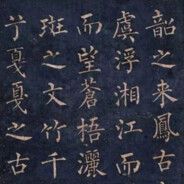 韶之来鳳古
虞浮湘江而
而望蒼梧灑
斑之文竹千
于戛戛之古